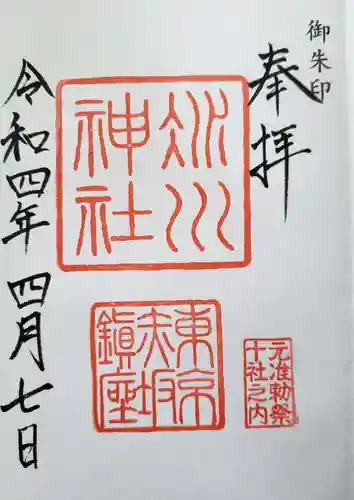 御朱印
奉拝
氷川
神社
東京
赤坂
鎮座
元准勅祭
十社之内
令和四年 四月七日